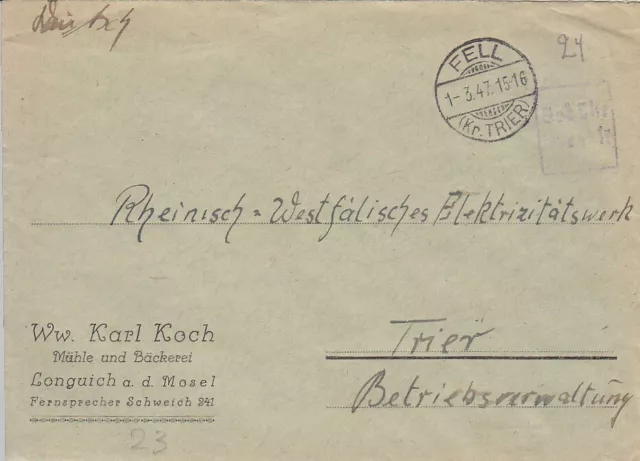 24
FELL
1-3.47.15-16
(Kr. TRIER)
Rheinisch=Westfälisches Elektrizitätswerk
Trier
Betriebsverwaltung
Ww. Karl Koch
Mühle und Bäckerei
Longuich a. d. Mosel
Fernsprecher Schweich 241
23